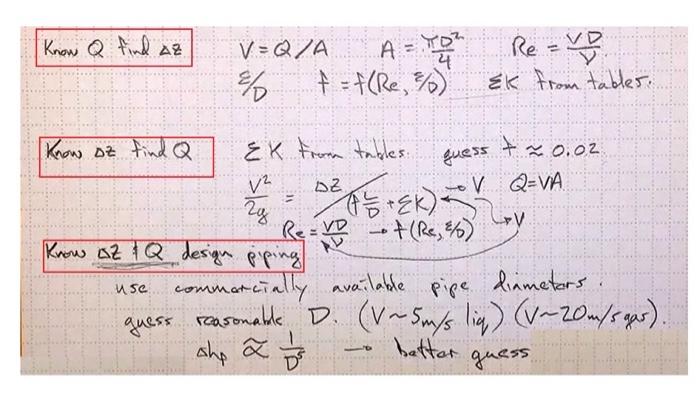 Know Q find ΔZ V = Q/A A = πD²/4 Re = VD/ν
ε/D f = f(Re, ε/D) ΣK from tables.
Know ΔZ find Q ΣK from tables. guess f ≈ 0.02
V²/2g = ΔZ/(f L/D + ΣK) → V Q=VA
Re = VD/ν → f(Re, ε/D) → V
Know ΔZ & Q design piping
use commercially available pipe diameters.
guess reasonable D. (V~5m/s liq) (V~20m/s gas).
Δhp ≈ 1/D⁵ → better guess